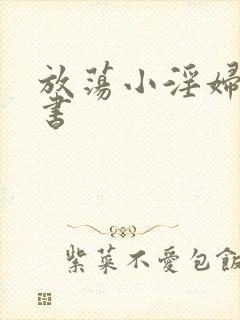 放荡小淫婦
書
紫菜不愛包飯